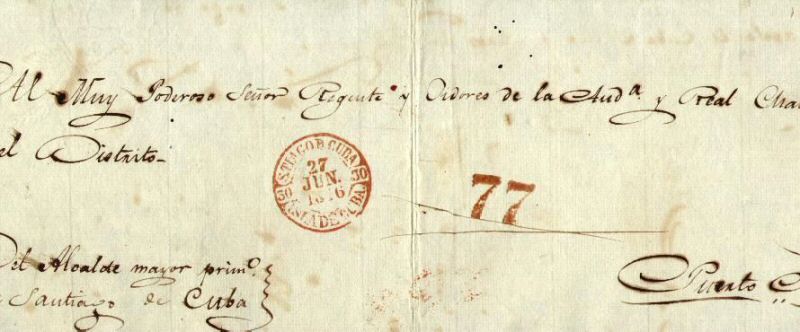 Al Muy Poderoso Señor Regente y Oidores de la Aud.ª y Real Cha
el Distrito
STIAGO D CUBA
27
JUN.
30 30
ISLA DE CUBA
77
Del Alcalde mayor prim.º
Santiago de Cuba
Puerto